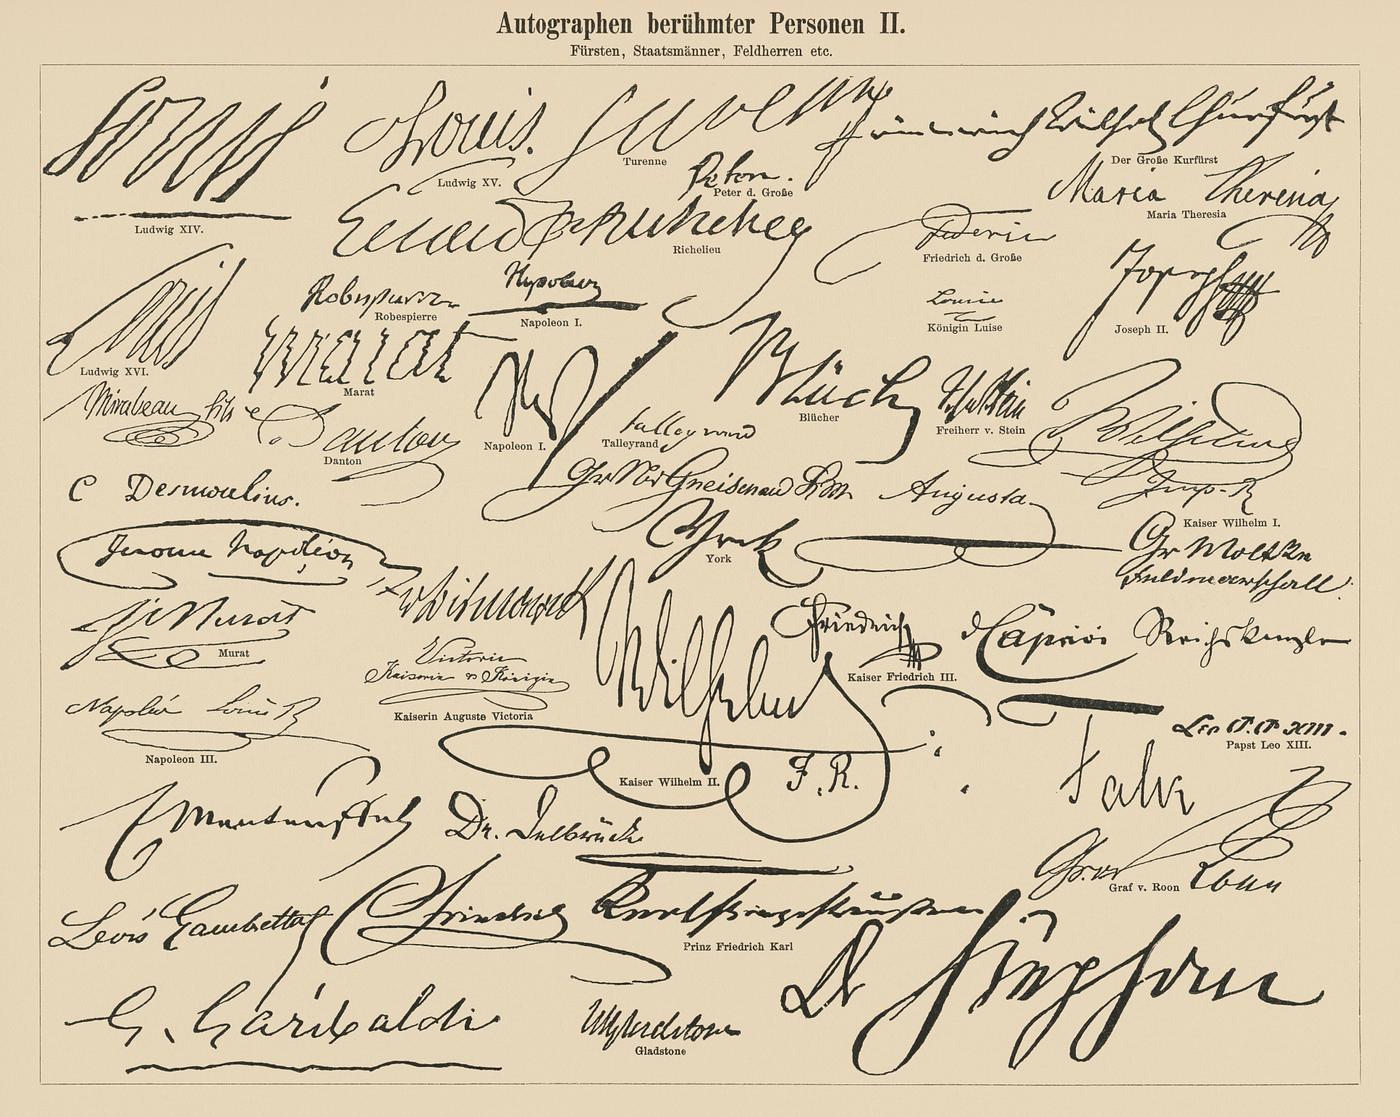 Autographen berühmter Personen II.
Fürsten, Staatsmänner, Feldherren etc.
Louis
Ludwig XIV.
Louis.
Ludwig XV.
Turenne
Turenne
Friderich Wilhelm Churfürst
Der Große Kurfürst
Peter d. Große
Maria Theresia
Maria Theresia
Richelieu
Federic
Friedrich d. Große
Louis
Ludwig XVI.
Robespierre
Robespierre
Napoleon I.
Louise
Königin Luise
Joseph
Joseph II.
Marat
Marat
Mirabeau fils
Danton
Danton
Napoleon I.
talleyrand
Talleyrand
Blücher
Blücher
Freiherr v. Stein
Wilhelm
Imp. R
Kaiser Wilhelm I.
C Desmoulins.
Gr N v Gneisenau
Augusta
York
York
Gr Moltke
Feldmarschall.
Jerome Napoléon
v Bismarck
Murat
Murat
Victoria
Kaiserin & Königin
Kaiserin Auguste Victoria
Wilhelm
I. R.
Kaiser Wilhelm II.
Friedrich
Kaiser Friedrich III.
Caprivi Reichskanzler
Napoléon Louis B
Napoleon III.
Leo P.P. XIII.
Papst Leo XIII.
Falk
Manteuffel
Dr. Delbrück
Graf Roon
Graf v. Roon
Léon Gambetta
Friedrich Karl Prinz v Preußen
Prinz Friedrich Karl
Dr Stephan
G. Garibaldi
WEGladstone
Gladstone